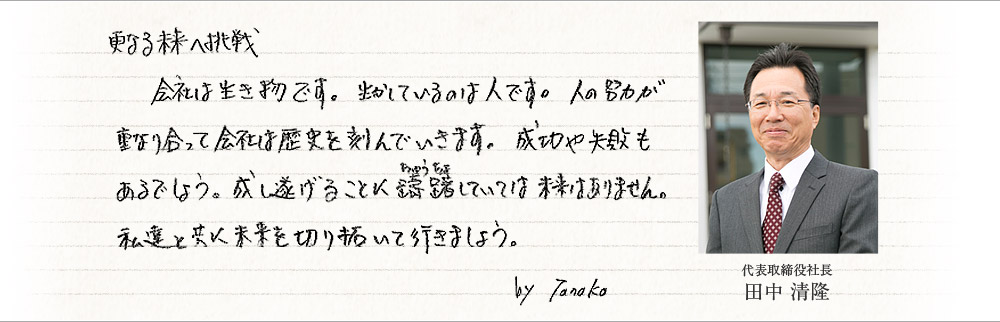 更なる未来へ挑戦
会社は生き物です。生かしているのは人です。人の努力が
重なり合って会社は歴史を刻んでいきます。成功や失敗も
あるでしょう。成し遂げることに躊躇していては未来はありません。
私達と共に未来を切り拓いて行きましょう。
by Tanaka
代表取締役社長
田中 清隆